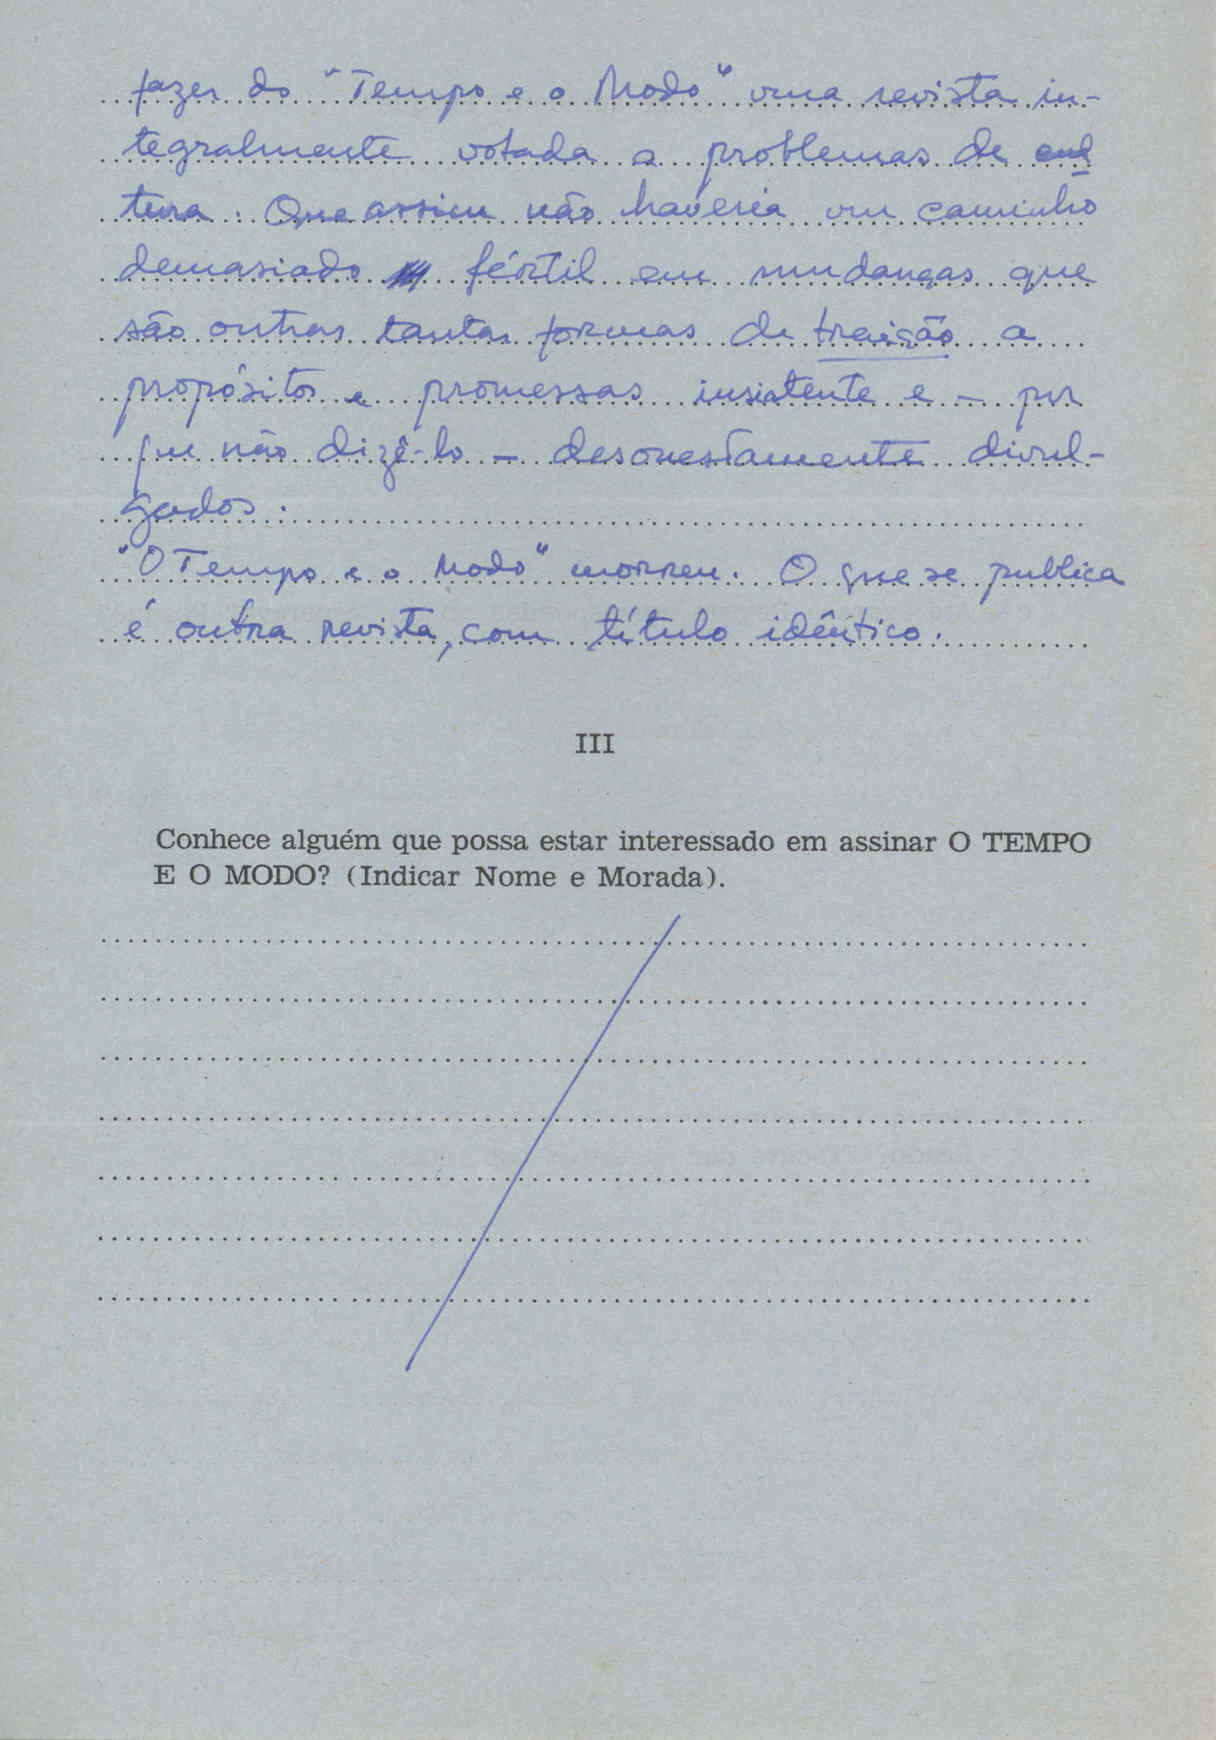 fazer do "Tempo e o Modo" uma revista in-
tegralmente votada a problemas de cul
tura. Que assim não haveria um caminho
demasiado fértil em mudanças que
são outras tantas formas de traição a
propósitos e promessas insistente e - por
que não dizê-lo - desonestamente divul-
gados.
"O Tempo e o Modo" morreu. O que se publica
é outra revista, com título idêntico.
III
Conhece alguém que possa estar interessado em assinar O TEMPO
E O MODO? (Indicar Nome e Morada).